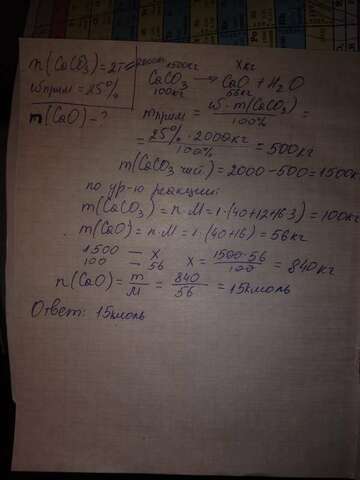 n(CaCO₃)=2т=2000кг 1500кг Xкг
CaCO₃ → CaO + H₂O
100кг 56кг
ωприм = 25%
m(CaO) - ?
mприм = ω·m(CaCO₃) / 100% =
= 25%·2000кг / 100% = 500кг
m(CaCO₃ чист.) = 2000-500=1500к
по ур-ю реакции:
m(CaCO₃) = n·M=1·(40+12+16·3)=100кг
m(CaO)= n·M = 1·(40+16)=56кг
1500 — X
100 — 56 X = 1500·56 / 100 = 840кг
n(CaO)= m / M = 840 / 56 = 15кмоль
Ответ: 15кмоль